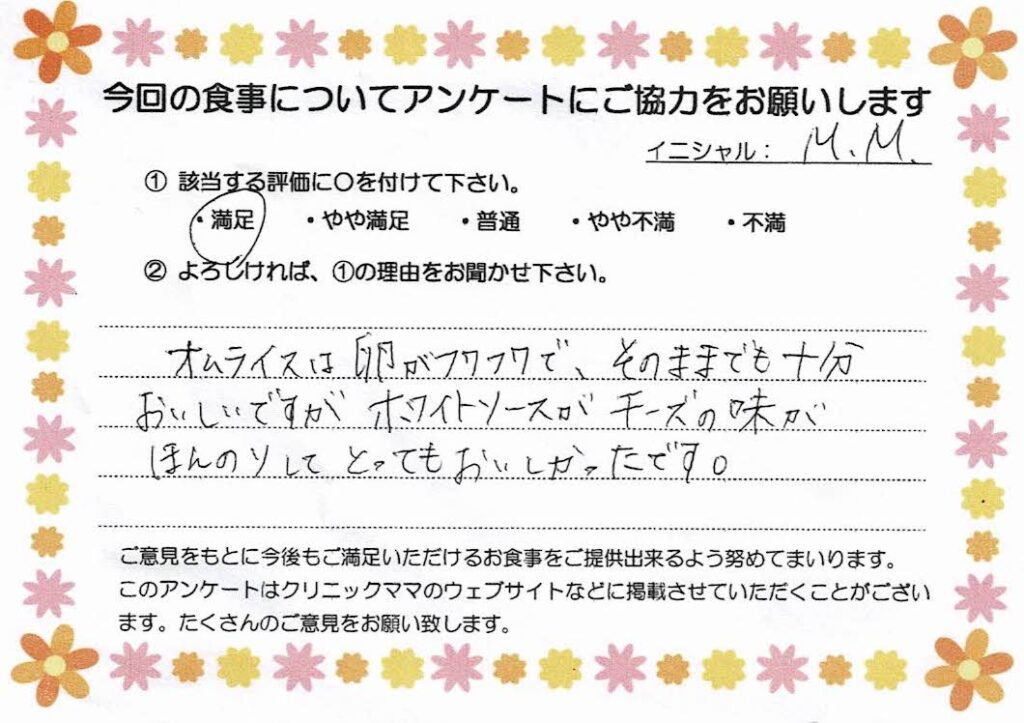 今回の食事についてアンケートにご協力をお願いします
イニシャル： M.M.
① 該当する評価に〇を付けて下さい。
・満足 ・やや満足 ・普通 ・やや不満 ・不満
② よろしければ、①の理由をお聞かせ下さい。
オムライスは卵がフワフワで、そのままでも十分
おいしいですが ホワイトソースが チーズの味が
ほんのりして とってもおいしかったです。
ご意見をもとに今後もご満足いただけるお食事をご提供出来るよう努めてまいります。
このアンケートはクリニックママのウェブサイトなどに掲載させていただくことがござい
ます。たくさんのご意見をお願い致します。